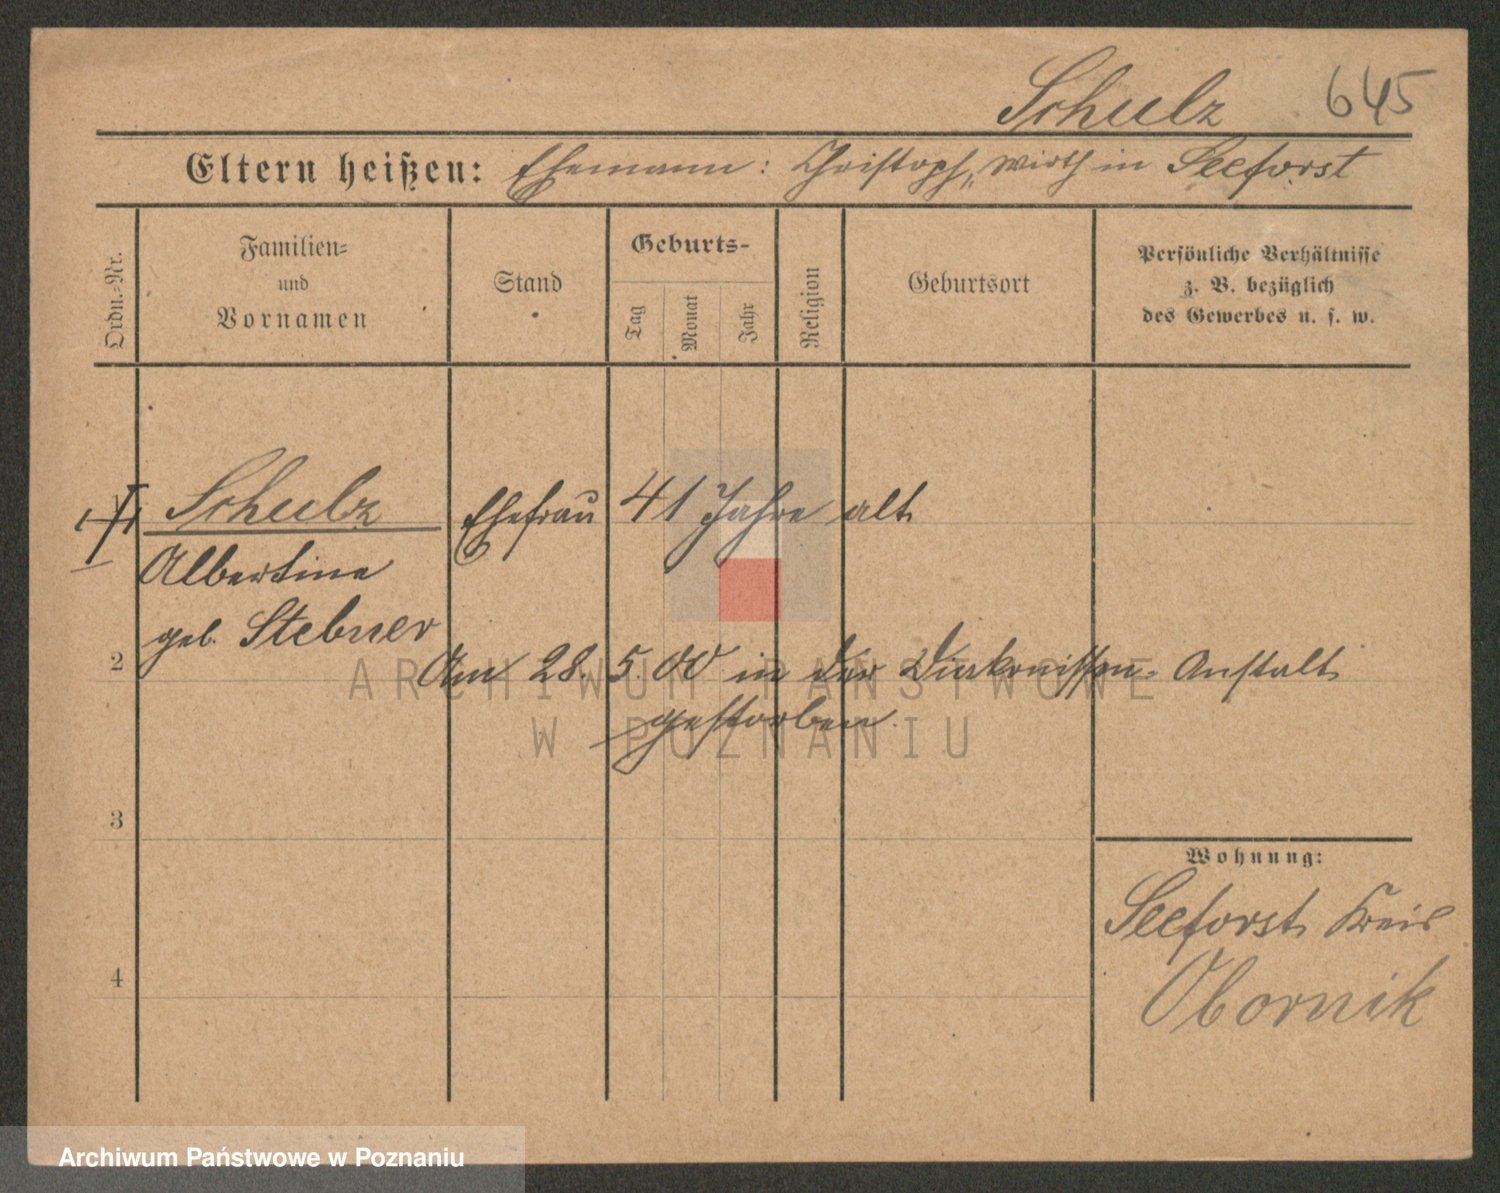 Schulz 645
Eltern heißen: Ehemann: Christoph, Wirth in Seeforst
Ordn.-Nr.
Familien-
und
Vornamen
Stand
Geburts-
Tag
Monat
Jahr
Religion
Geburtsort
Persönliche Verhältnisse
z. B. bezüglich
des Gewerbes u. s. w.
1 Schulz Ehefrau 41 Jahre alt
Albertine
geb. Stebner
2 Am 28. 5. 00 in der Diakonissen-Anstalt
gestorben.
ARCHIWUM PAŃSTWOWE
W POZNANIU
3
Wohnung:
Seeforst Kreis
4
Obornik
Archiwum Państwowe w Poznaniu